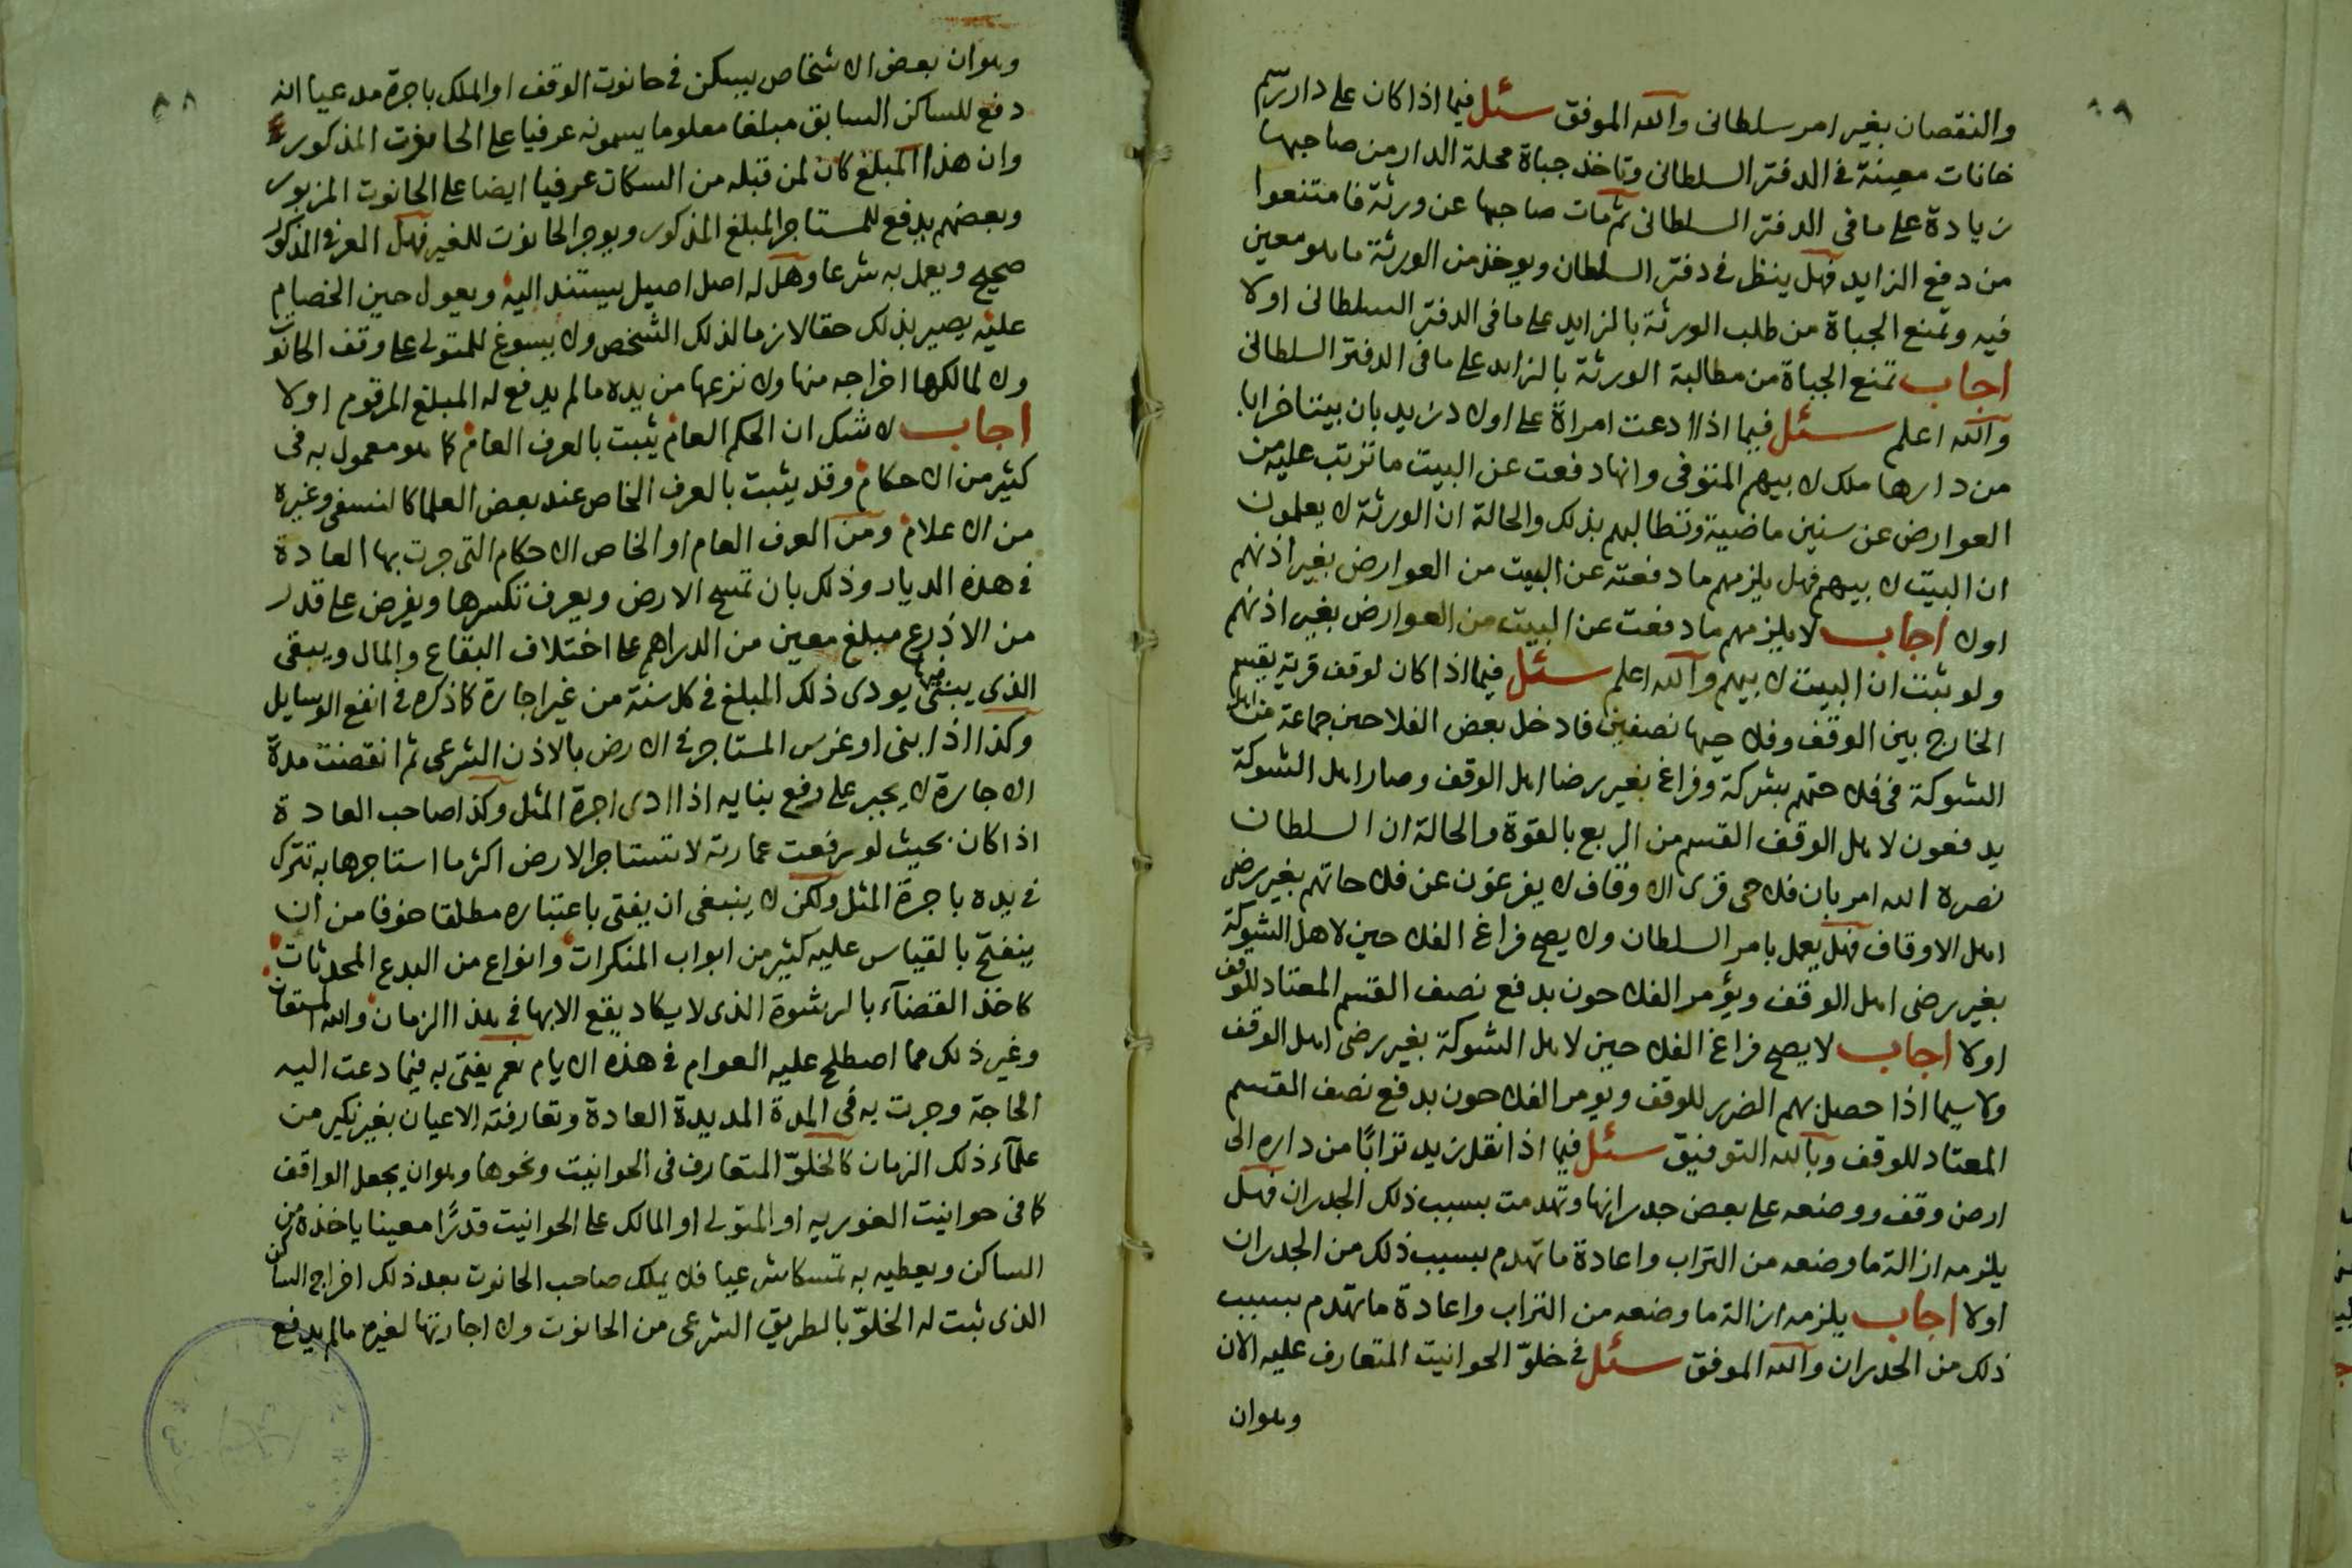 والنقصان بغير امر سلطانى والله الموفق سئل فيما اذا كان على دار رسم
خانات معينة فى الدفتر السلطانى وتاخذ جباة محلة الدار من صاحبها
زيادة على ما فى الدفتر السلطانى ثم مات صاحبها عن ورثة فامتنعوا
من دفع الزايد فهل ينظر فى دفتر السلطان ويوخذ من الورثة ما هو معين
فيه وتمنع الجباة من طلب الورثة بالزايد على ما فى الدفتر السلطانى اولا
اجاب تمنع الجباة من مطالبة الورثة بالزايد على ما فى الدفتر السلطانى
والله اعلم سئل فيما اذا ادعت امراة على اولاد زيد بان بيتا خرابا
من دارها ملك لابيهم المتوفى وانها دفعت عن البيت ما ترتب عليه من
العوارض عن سنين ماضية وتطالبهم بذلك والحالة ان الورثة لا يعلمون
ان البيت لابيهم فهل يلزمهم ما دفعته عن البيت من العوارض بغير اذنهم
اولا اجاب لا يلزمهم ما دفعت عن البيت من العوارض بغير اذنهم
ولو ثبت ان البيت لابيهم والله اعلم سئل فيما اذا كان لوقف قرية يقسم
الخارج بين الوقف وفلاحيها نصفين فادخل بعض الفلاحين جماعة من اهل
الشوكة فى فلاحتهم بشركة وفراغ بغير رضا اهل الوقف وصار اهل الشوكة
يدفعون لاهل الوقف القسم من الربع بالقوة والحالة ان السلطان
نصره الله امر بان فلاحى قرى الاوقاف لا يفرغون عن فلاحاتهم بغير رضى
اهل الاوقاف فهل يعمل بامر السلطان ولا يصح فراغ الفلاحين لاهل الشوكة
بغير رضى اهل الوقف ويؤمر الفلاحون بدفع نصف القسم المعتاد للوقف
اولا اجاب لا يصح فراغ الفلاحين لاهل الشوكة بغير رضى اهل الوقف
ولا سيما اذا حصل بهم الضرر للوقف ويومر الفلاحون بدفع نصف القسم
المعتاد للوقف وبالله التوفيق سئل فيما اذا نقل زيد ترابًا من داره الى
ارض وقف ووضعه على بعض جدرانها وتهدمت بسبب ذلك الجدران فهل
يلزمه ازالة ما وضعه من التراب واعادة ما تهدم بسبب ذلك من الجدران
اولا اجاب يلزمه ازالة ما وضعه من التراب واعادة ما تهدم بسبب
ذلك من الجدران والله الموفق سئل فى خلوّ الحوانيت المتعارف عليه الان
وهوان
٨٨
وهوان بعض الاشخاص يسكن فى حانوت الوقف او الملك باجرة مدعيا انه
دفع للساكن السابق مبلغا معلوما يسمونه عرفيا على الحانوت المذكور
وان هذا المبلغ كان لمن قبله من السكان عرفيا ايضا على الحانوت المزبور
وبعضهم يدفع للمستاجر المبلغ المذكور ويوجر الحانوت للغير فهل العرفى المذكور
صحيح ويعمل به شرعا وهل له اصل اصيل يستند اليه ويعول حين الخصام
عليه يصير بذلك حقا لازما لذلك الشخص ولا يسوغ للمتولى على وقف الحانوت
ولا لمالكها اخراجه منها ولا نزعها من يده ما لم يدفع له المبلغ المرقوم اولا
اجاب لا شك ان الحكم العام يثبت بالعرف العام كما هو معمول به فى
كثير من الاحكام وقد يثبت بالعرف الخاص عند بعض العلما كالنسفى وغيره
من الاعلام ومن العرف العام او الخاص الاحكام التى جرت بها العادة
فى هذه الديار وذلك بان تمسح الارض ويعرف تكسرها ويفرض على قدر
من الاذرع مبلغ معين من الدراهم على اختلاف البقاع والمال ويبقى
الذى يبنى فيها يودى ذلك المبلغ فى كل سنة من غير اجارة كما ذكره فى انفع الوسايل
وكذا اذا بنى او غرس المستاجر فى الارض بالاذن الشرعى ثم انقضت مدة
الاجارة لا يجبر على رفع بنايه اذا ادى اجرة المثل وكذا صاحب العادة
اذا كان بحيث لو رفعت عمارته لا تستاجر الارض اكثر ما استاجرها به تترك
فى يده باجرة المثل ولكن لا ينبغى ان يفتى باعتباره مطلقا خوفا من ان
ينفتح بالقياس عليه كثير من ابواب المنكرات وانواع من البدع المحدثات
كاخذ القضآء بالرشوة الذى لا يكاد يقع الا بها فى هذا الزمان والله المستعان
وغير ذلك مما اصطلح عليه العوام فى هذه الايام نعم يفتى به فيما دعت اليه
الحاجة وجرت به فى المدة المديدة العادة وتعارفته الاعيان بغير نكير من
علمآء ذلك الزمان كالخلوّ المتعارف فى الحوانيت ونحوها وهو ان يجعل الواقف
كما فى حوانيت الغوريه او المتولى او المالك على الحوانيت قدرًا معينا ياخذه من
الساكن ويعطيه به تمسكا شرعيا فلا يملك صاحب الحانوت بعد ذلك اخراج الساكن
الذى ثبت له الخلوّ بالطريق الشرعى من الحانوت ولا اجارتها لغيره ما لم يدفع